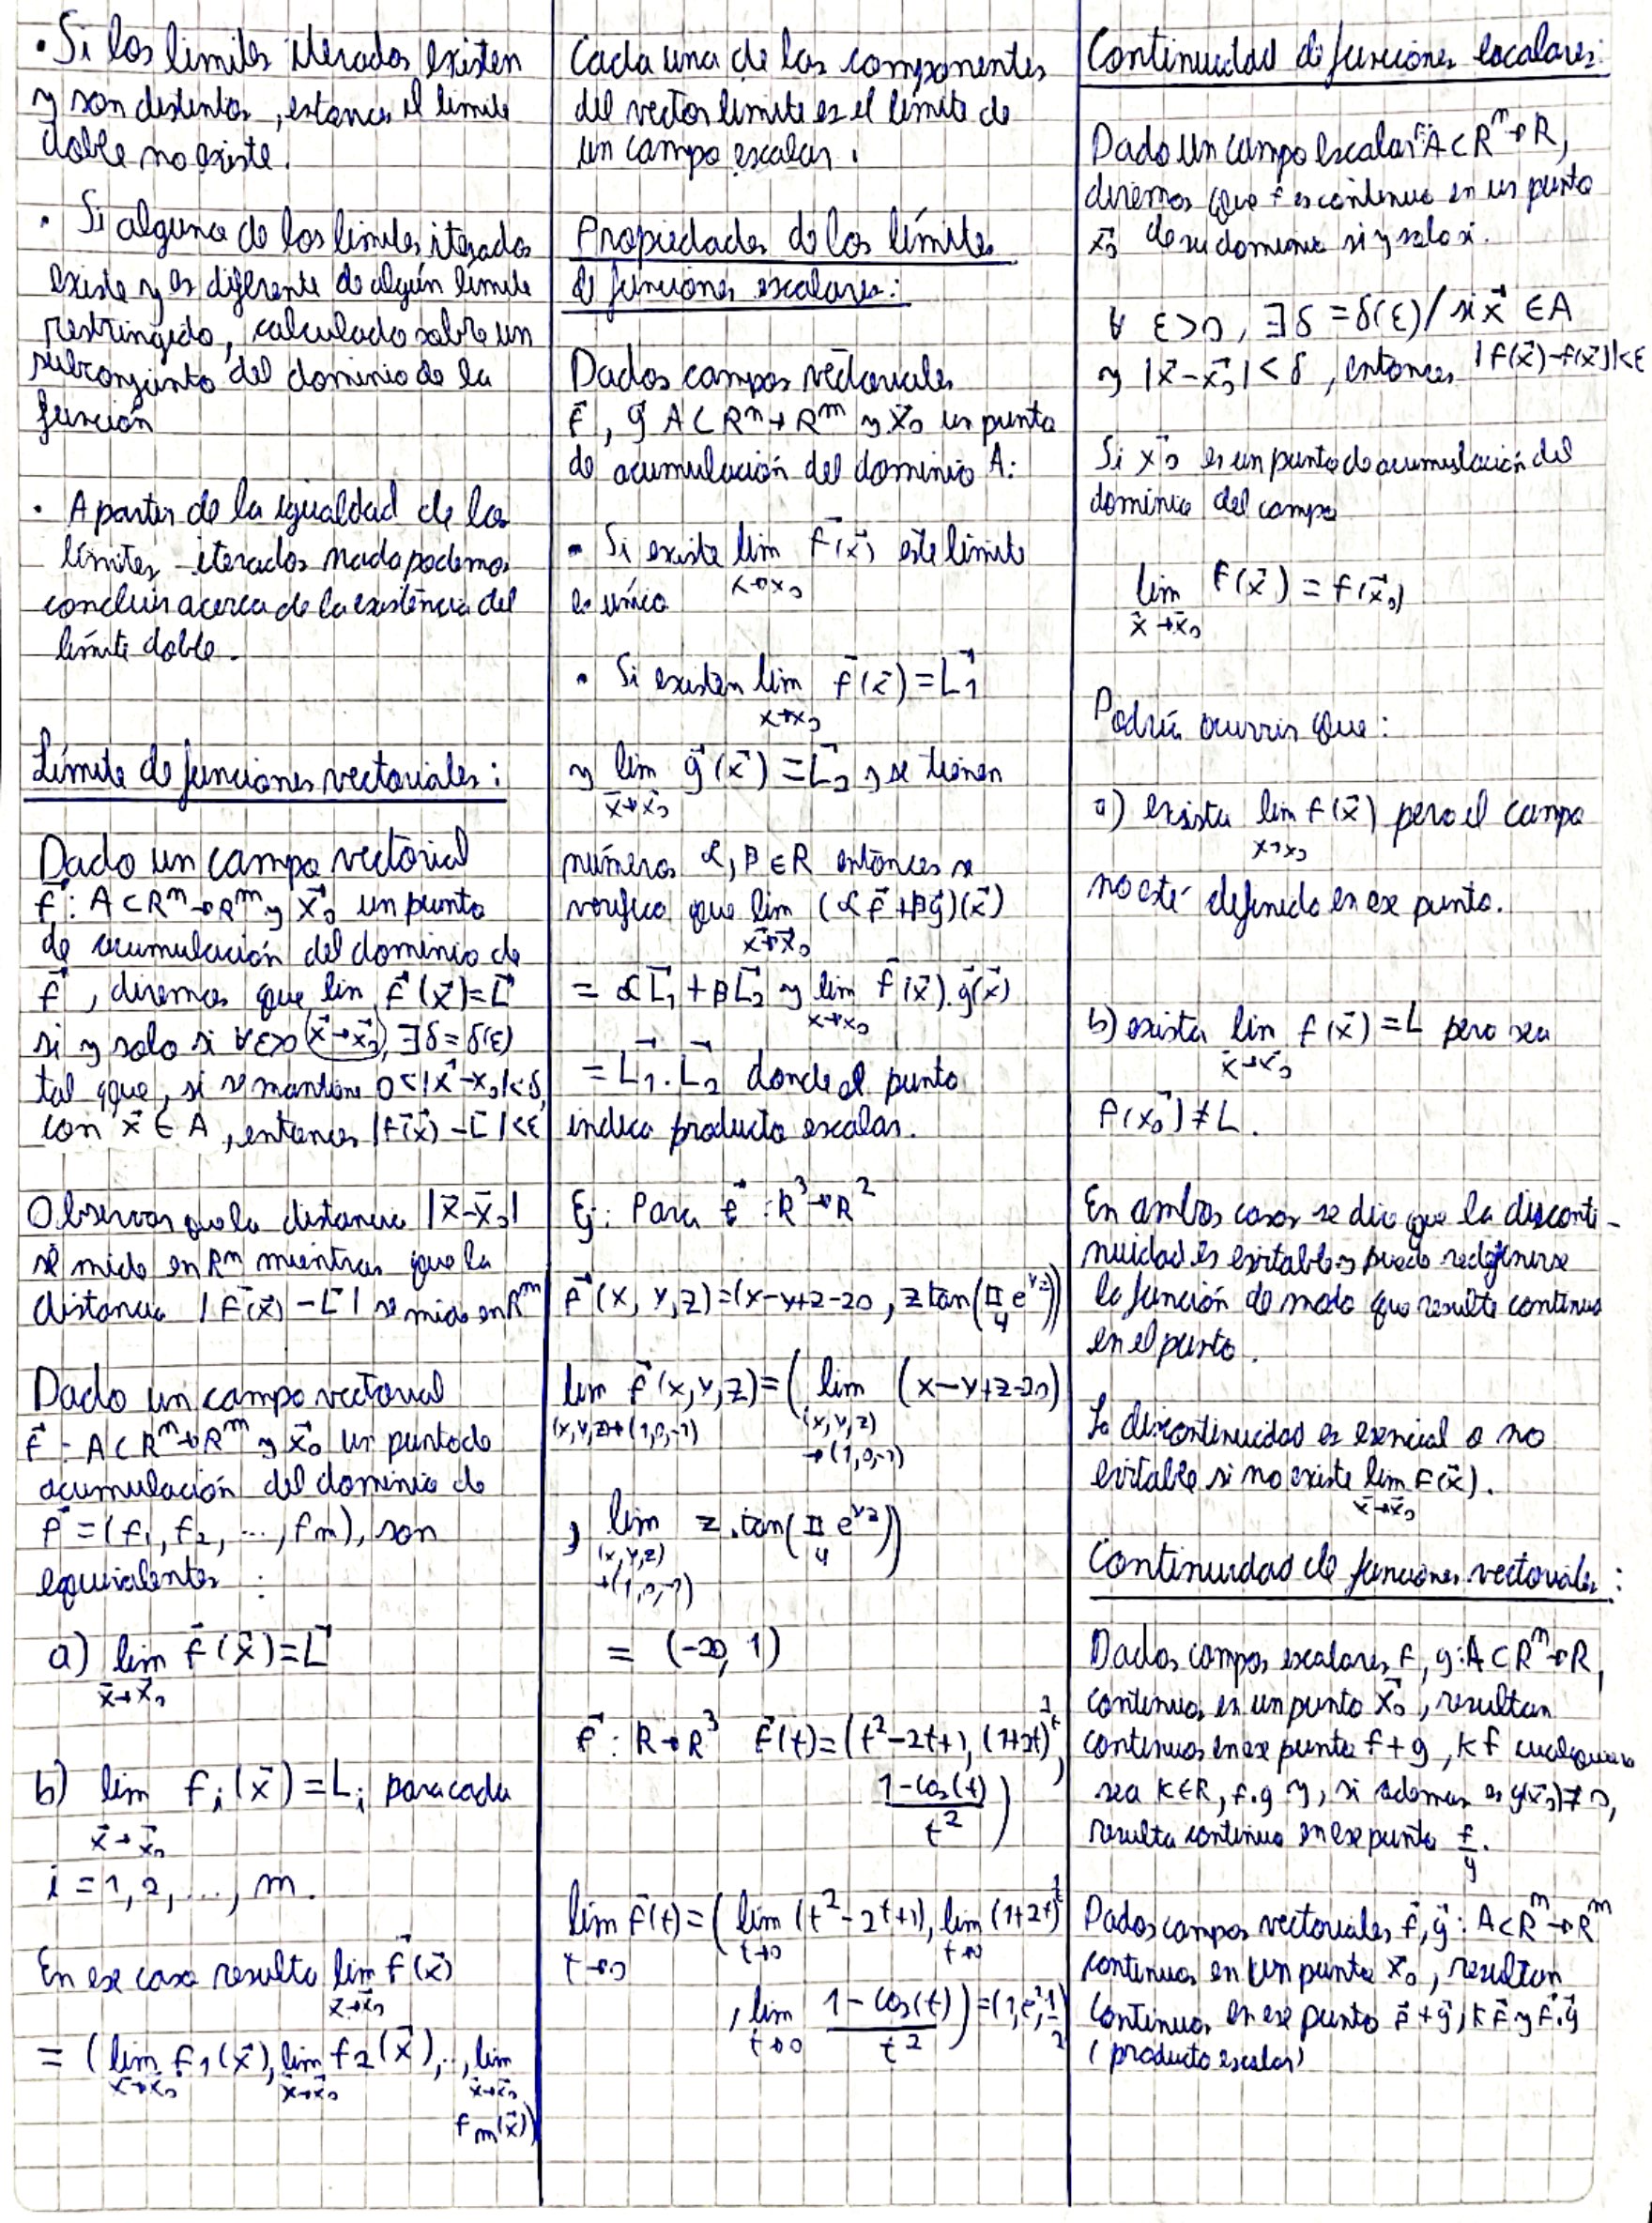 • Si los límites iterados existen
y son distintos, entonces el límite
doble no existe.
• Si alguno de los límites iterados
existe y es diferente de algún límite
restringido, calculado sobre un
subconjunto del dominio de la
función
• A partir de la igualdad de los
límites iterados nada podemos
concluir acerca de la existencia del
límite doble.
Límite de funciones vectoriales:
Dado un campo vectorial
f⃗: A⊂Rⁿ→Rᵐ y x⃗₀ un punto
de acumulación del dominio de
f⃗, diremos que lim f⃗(x⃗)=L⃗
si y solo si ∀ε>0 (x⃗→x⃗₀), ∃δ=δ(ε)
tal que, si se mantiene 0<|x⃗-x₀|<δ,
con x⃗ ∈ A, entonces |f⃗(x⃗)-L⃗|<ε
Observar que la distancia |x⃗-x⃗₀|
se mide en Rⁿ mientras que la
distancia |f⃗(x⃗)-L⃗| se mide en Rᵐ
Dado un campo vectorial
f⃗: A⊂Rⁿ→Rᵐ y x⃗₀ un punto de
acumulación del dominio de
f⃗=(f₁, f₂, ..., fm), son
equivalentes:
a) lim f⃗(x⃗)=L⃗
x⃗→x⃗₀
b) lim fᵢ(x⃗)=Lᵢ para cada
x⃗→x⃗₀
i=1,2,...,m.
En ese caso resulta lim f⃗(x⃗)
x⃗→x⃗₀
= (lim f₁(x⃗), lim f₂(x⃗), .., lim
x⃗→x⃗₀ x⃗→x⃗₀ x⃗→x⃗₀
fm(x⃗))
Cada una de las componentes
del vector límite es el límite de
un campo escalar.
Propiedades de los límites
de funciones escalares:
Dados campos vectoriales
f⃗, g⃗ A⊂Rⁿ→Rᵐ y x⃗₀ un punto
de acumulación del dominio A:
• Si existe lim f⃗(x⃗) este límite
es único x→x₀
• Si existen lim f⃗(x⃗)=L⃗₁
x→x₀
y lim g⃗(x⃗)=L⃗₂, y se tienen
x⃗→x⃗₀
números α, β ∈ R entonces se
verifica que lim (αf⃗+βg⃗)(x⃗)
x⃗→x⃗₀
= αL⃗₁+βL⃗₂ y lim f⃗(x⃗).g⃗(x⃗)
x→x₀
= L⃗₁.L⃗₂ donde el punto
indica producto escalar.
Ej: Para f⃗: R³→R²
f⃗(x, y, z)=(x-y+z-20, z tan(π/4 e^(yz)))
lim f⃗(x,y,z)=( lim (x-y+z-20)
(x,y,z)→(1,0,-1) (x,y,z)
→(1,0,-1)
, lim z.tan(π/4 e^(yz)))
(x,y,z)
→(1,0,-1)
= (-20, 1)
f⃗: R→R³ f⃗(t)=(t²-2t+1, (1+2t)^(1/t),
(1-cos(t))/t²)
lim f⃗(t)=( lim (t²-2t+1), lim (1+2t)^(1/t)
t→0 t→0 t→0
, lim (1-cos(t))/t²)=(1,e²,1/2)
t→0
Continuidad de funciones escalares:
Dado un campo escalar f: A⊂Rⁿ→R,
diremos que f es continuo en un punto
x⃗₀ de su dominio si y solo si.
∀ ε>0, ∃δ=δ(ε)/ si x⃗ ∈A
y |x⃗-x⃗₀|<δ, entonces |f(x⃗)-f(x⃗₀)|<ε
Si x⃗₀ es un punto de acumulación del
dominio del campo
lim f(x⃗)=f(x⃗₀)
x⃗→x⃗₀
Podría ocurrir que:
a) exista lim f(x⃗) pero el campo
x→x₀
no esté definido en ese punto.
b) exista lim f(x⃗)=L pero sea
x⃗→x⃗₀
f(x⃗₀)≠L.
En ambos casos se dice que la disconti-
nuidad es evitable y puede redefinirse
la función de modo que resulte continua
en el punto.
La discontinuidad es esencial o no
evitable si no existe lim f(x⃗).
x⃗→x⃗₀
Continuidad de funciones vectoriales:
Dados campos escalares f, g: A⊂Rⁿ→R,
continuos en un punto x⃗₀, resultan
continuos en ese punto f+g, kf cualquiera
sea k∈R, f.g y, si además es g(x⃗₀)≠0,
resulta continuo en ese punto f/g.
Dados campos vectoriales f⃗, g⃗: A⊂Rⁿ→Rᵐ
continuos en un punto x⃗₀, resultan
continuos en ese punto f⃗+g⃗, kf⃗ y f⃗.g⃗
(producto escalar)